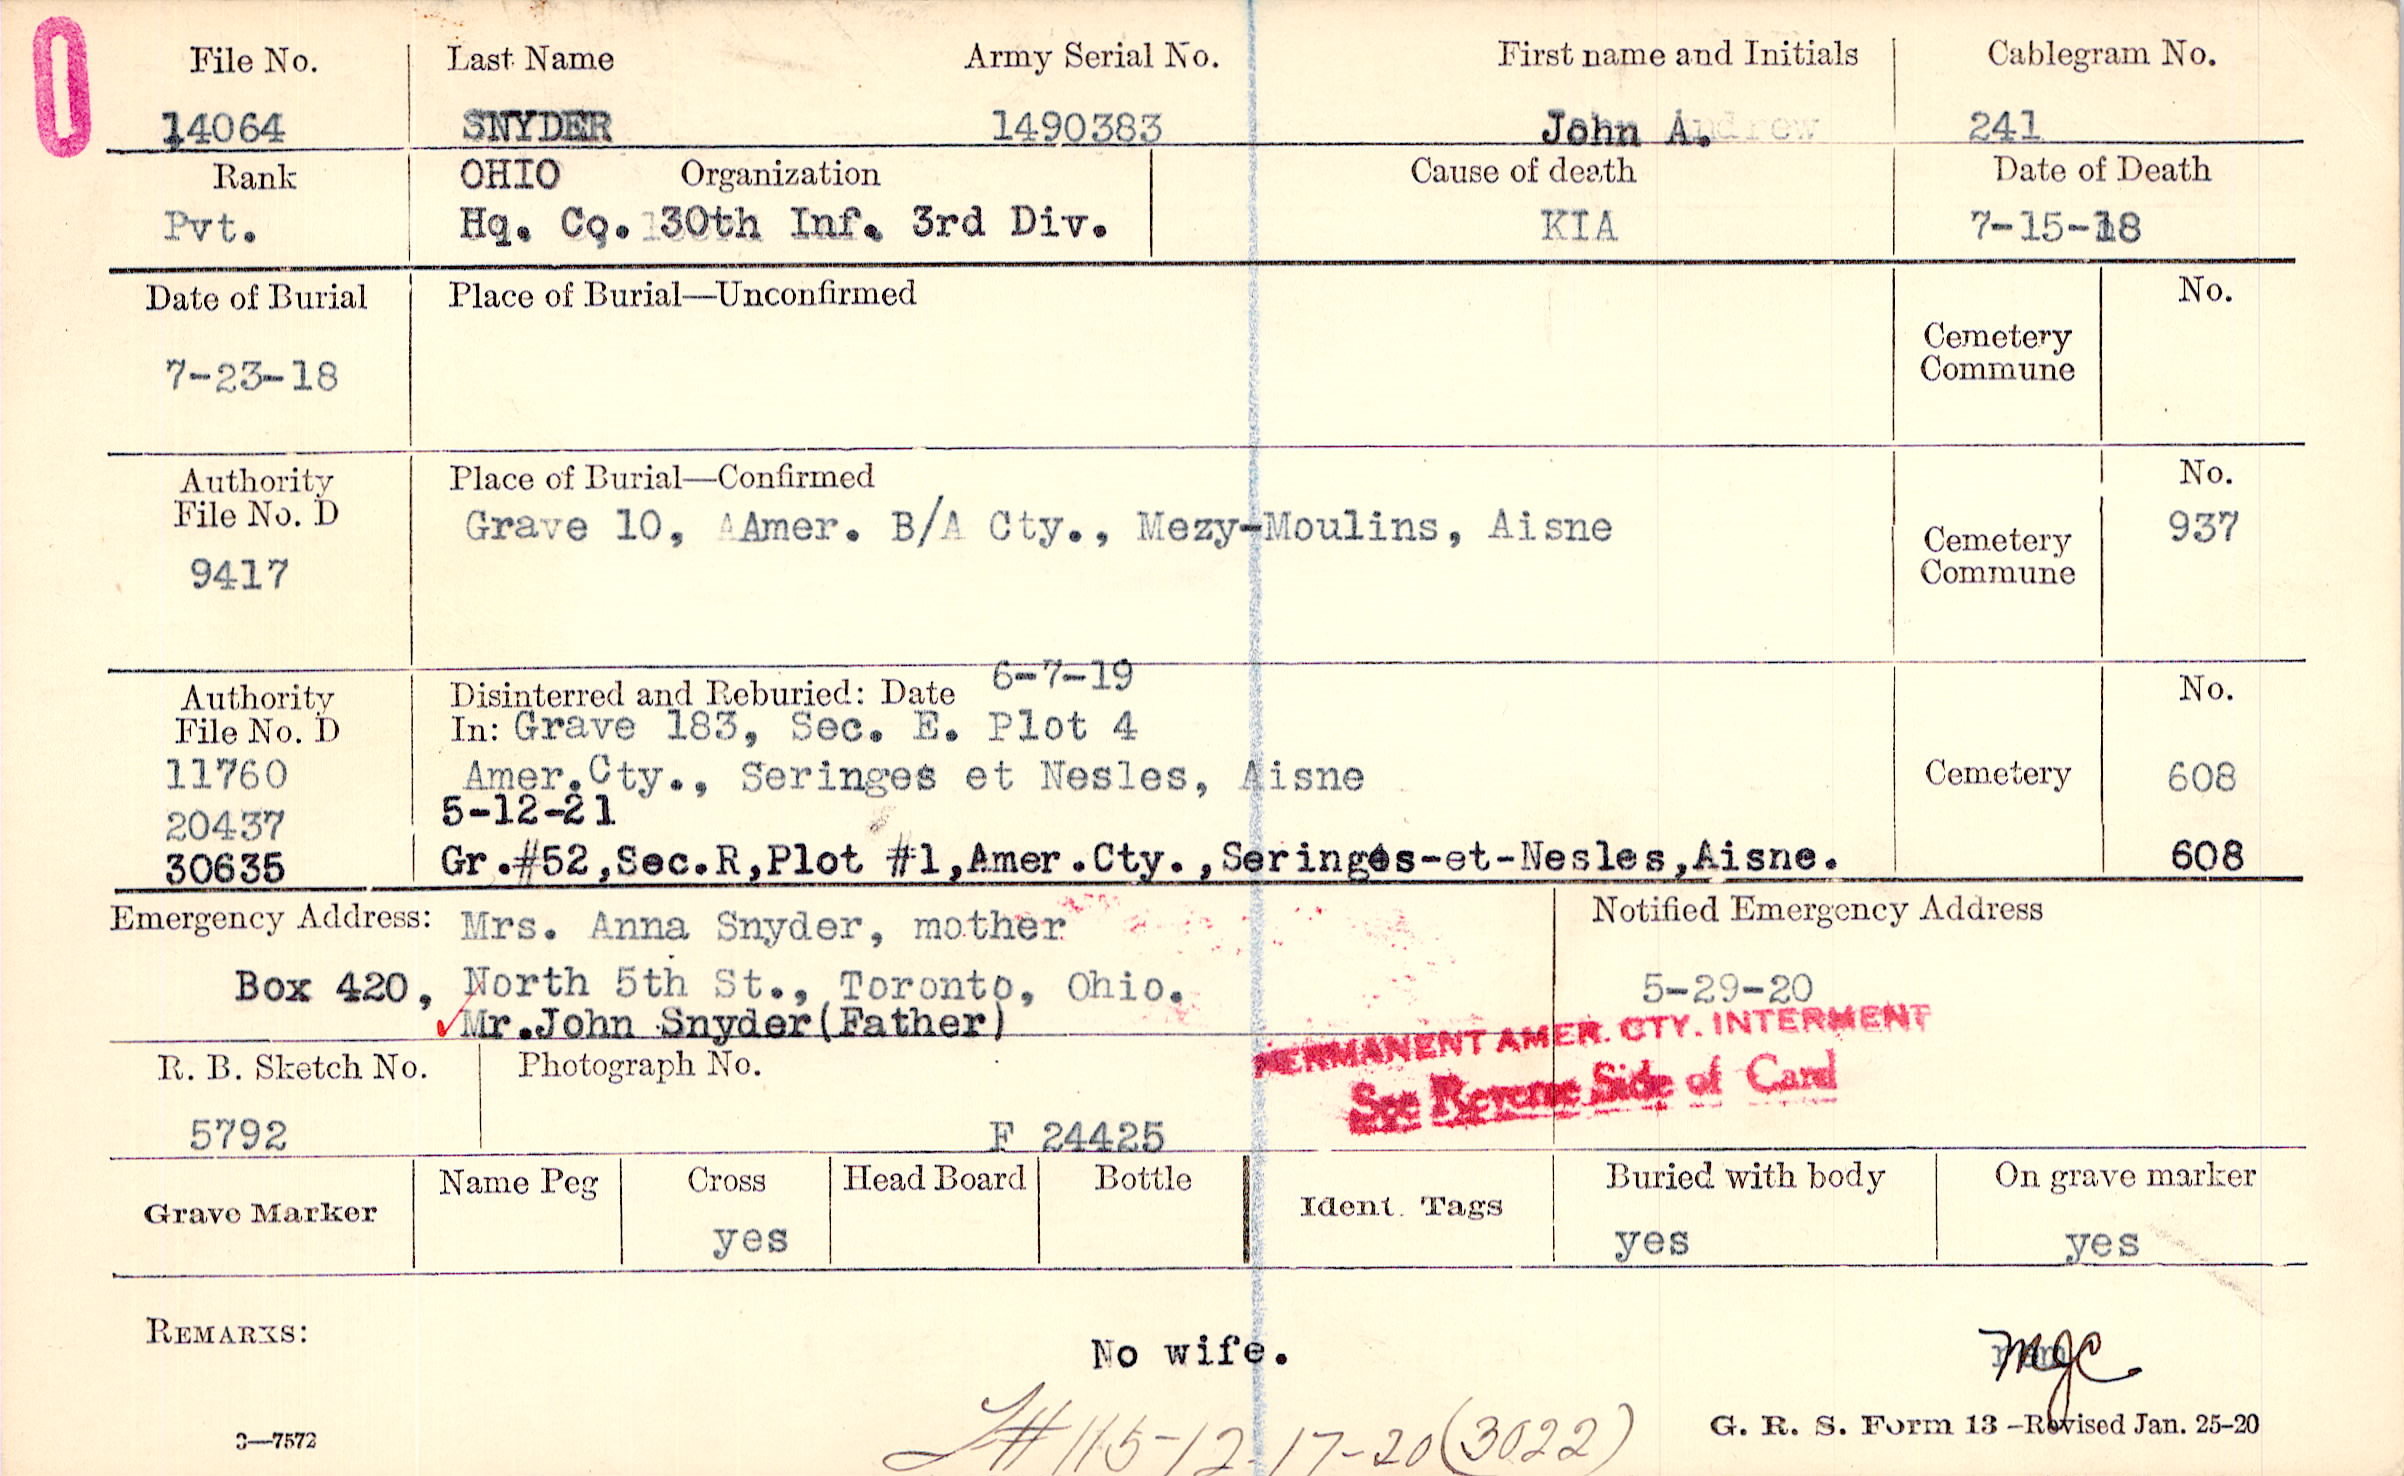 File No. Last Name Army Serial No. First name and Initials Cablegram No.
14064 SNYDER 1490383 John A. 241
Rank OHIO Organization Cause of death Date of Death
Pvt. Hq. Co. 30th Inf. 3rd Div. KIA 7-15-18
Date of Burial Place of Burial—Unconfirmed No.
Cemetery
Commune
7-23-18
Authority Place of Burial—Confirmed No.
File No. D Grave 10, Amer. B/A Cty., Mezy-Moulins, Aisne 937
Cemetery
9417 Commune
Authority Disinterred and Reburied: Date 6-7-19 No.
File No. D In: Grave 183, Sec. E. Plot 4
11760 Amer.Cty., Seringes et Nesles, Aisne Cemetery 608
20437 5-12-21
30635 Gr.#52,Sec.R,Plot #1,Amer.Cty.,Seringes-et-Nesles,Aisne. 608
Emergency Address: Mrs. Anna Snyder, mother Notified Emergency Address
Box 420, North 5th St., Toronto, Ohio. 5-29-20
Mr.John Snyder(Father)
PERMANENT AMER. CTY. INTERMENT
See Reverse Side of Card
R. B. Sketch No. Photograph No.
5792 F 24425
Grave Marker Name Peg Cross Head Board Bottle Ident. Tags Buried with body On grave marker
yes yes yes
REMARKS:
No wife. MJC
115-12-17-20(3022)
3—7572 G. R. S. Form 13 -Revised Jan. 25-20